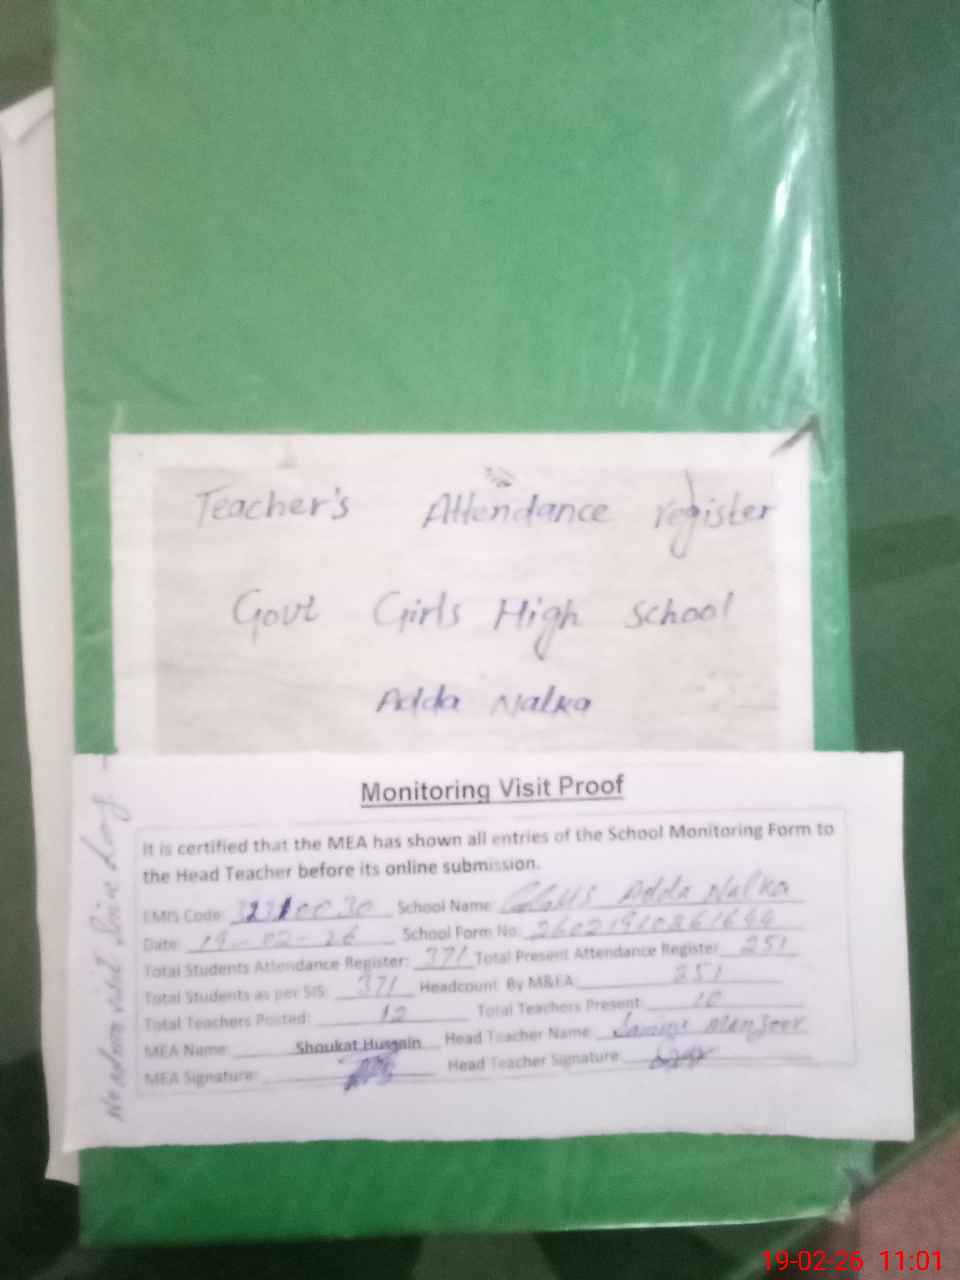 Teacher's Attendance register
Govt Girls High School
Adda Nalka
Monitoring Visit Proof
It is certified that the MEA has shown all entries of the School Monitoring Form to
the Head Teacher before its online submission.
EMIS Code: School Name: GGHS Adda Nalka
Date: 19-02-26 School Form No:
Total Students Attendance Register: 371 Total Present Attendance Register 251
Total Students as per SIS: 371 Headcount By M&EA: 251
Total Teachers Posted: 12 Total Teachers Present: 10
MEA Name: Shoukat Hussain Head Teacher Name:
MEA Signature: Head Teacher Signature:
visit
19-02-26 11:01